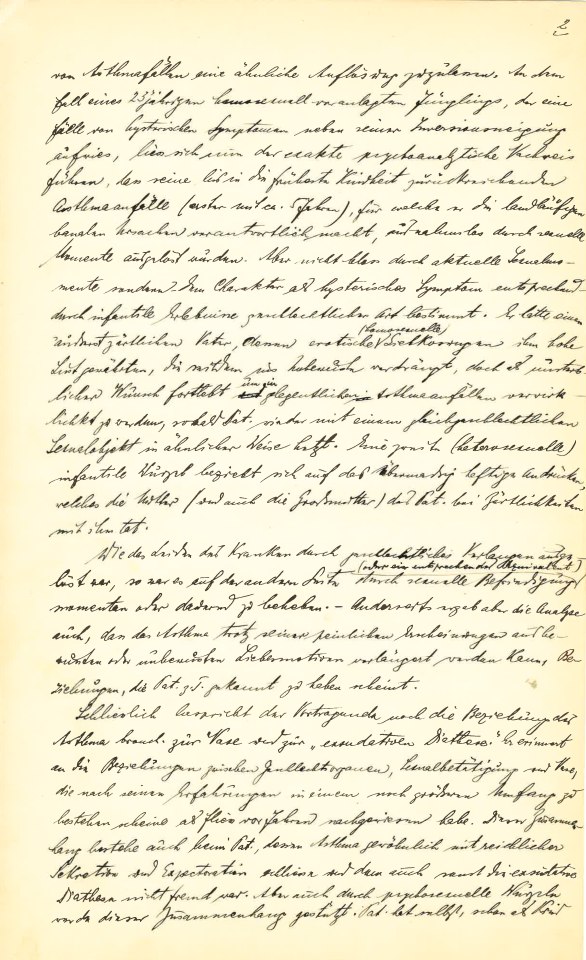 2
von Asthmafällen eine ähnliche Auflösung zuzulassen. An dem
Fall eines 23jährigen homosexuell veranlagten Jünglings, der eine
Fülle von hysterischen Symptomen neben seiner Inversionsneigung
aufwies, liess sich nun der exakte psychoanalytische Nachweis
führen, dass seine bis in die früheste Kindheit zurückreichenden
Asthmaanfälle (erster mit ca. 5 Jahren), für welche er die landläufigen
banalen Ursachen verantwortlich macht, ausnahmslos durch sexuelle
Momente ausgelöst wurden. Aber nicht bloss durch aktuelle Sexualmo-
mente sondern dem Charakter als hysterisches Symptom entsprechend
durch infantile Erlebnisse geschlechtlicher Art bestimmt. Er hatte einen
äusserst zärtlichen Vater, dessen erotische (homosexuelle) Liebkosungen ihm hohe
Lust gewährten, die seitdem ins Unbewusste verdrängt, doch als unsterb-
licher Wunsch fortlebt um in gelegentlichen Asthmaanfällen verwirk-
licht zu werden, sobald Pat. wieder mit einem gleichgeschlechtlichen
Sexualobjekt in ähnlicher Weise
Eine zweite (heterosexuelle)
infantile Wurzel bezieht sich auf das übermässig heftige Andrücken,
welches die Mutter (und auch die Grossmutter) des Pat. bei Zärtlichkeiten
mit ihm tat.
Wie das Leiden des Kranken durch geschlechtliches Verlangen ausge-
löst war, so war es auf der andern Seite durch sexuelle Befriedigung (oder ein entsprechendes Äquivalent)
momentan oder dauernd zu beheben. – Anderseits ergab aber die Analyse
auch, dass das Asthma trotz seiner peinlichen Erscheinungen aus be-
wussten oder unbewussten Liebesmotiven verlängert werden kann, Be-
ziehungen, die Pat. z.T. gekannt zu haben scheint.
Schliesslich bespricht der Vortragende noch die Beziehung des
Asthma bronch. zur Nase und zur „exsudativen Diathese". Er erinnert
an die Beziehungen zwischen Genitalorganen, Sexualbetätigung und Nase,
die nach seinen Erfahrungen in einem noch grösseren Umfang zu
bestehen scheine als Fliess vor Jahren nachgewiesen habe. Dieser Zusammen-
hang bestehe auch beim Pat., dessen Asthma gewöhnlich mit reichlicher
Sekretion und Expectoration und dem auch sonst die exsudative
Diathese nicht fremd war. Aber auch durch psychosexuelle Wurzeln
werde dieser Zusammenhang gestützt. Pat. hat selbst, schon als Kind